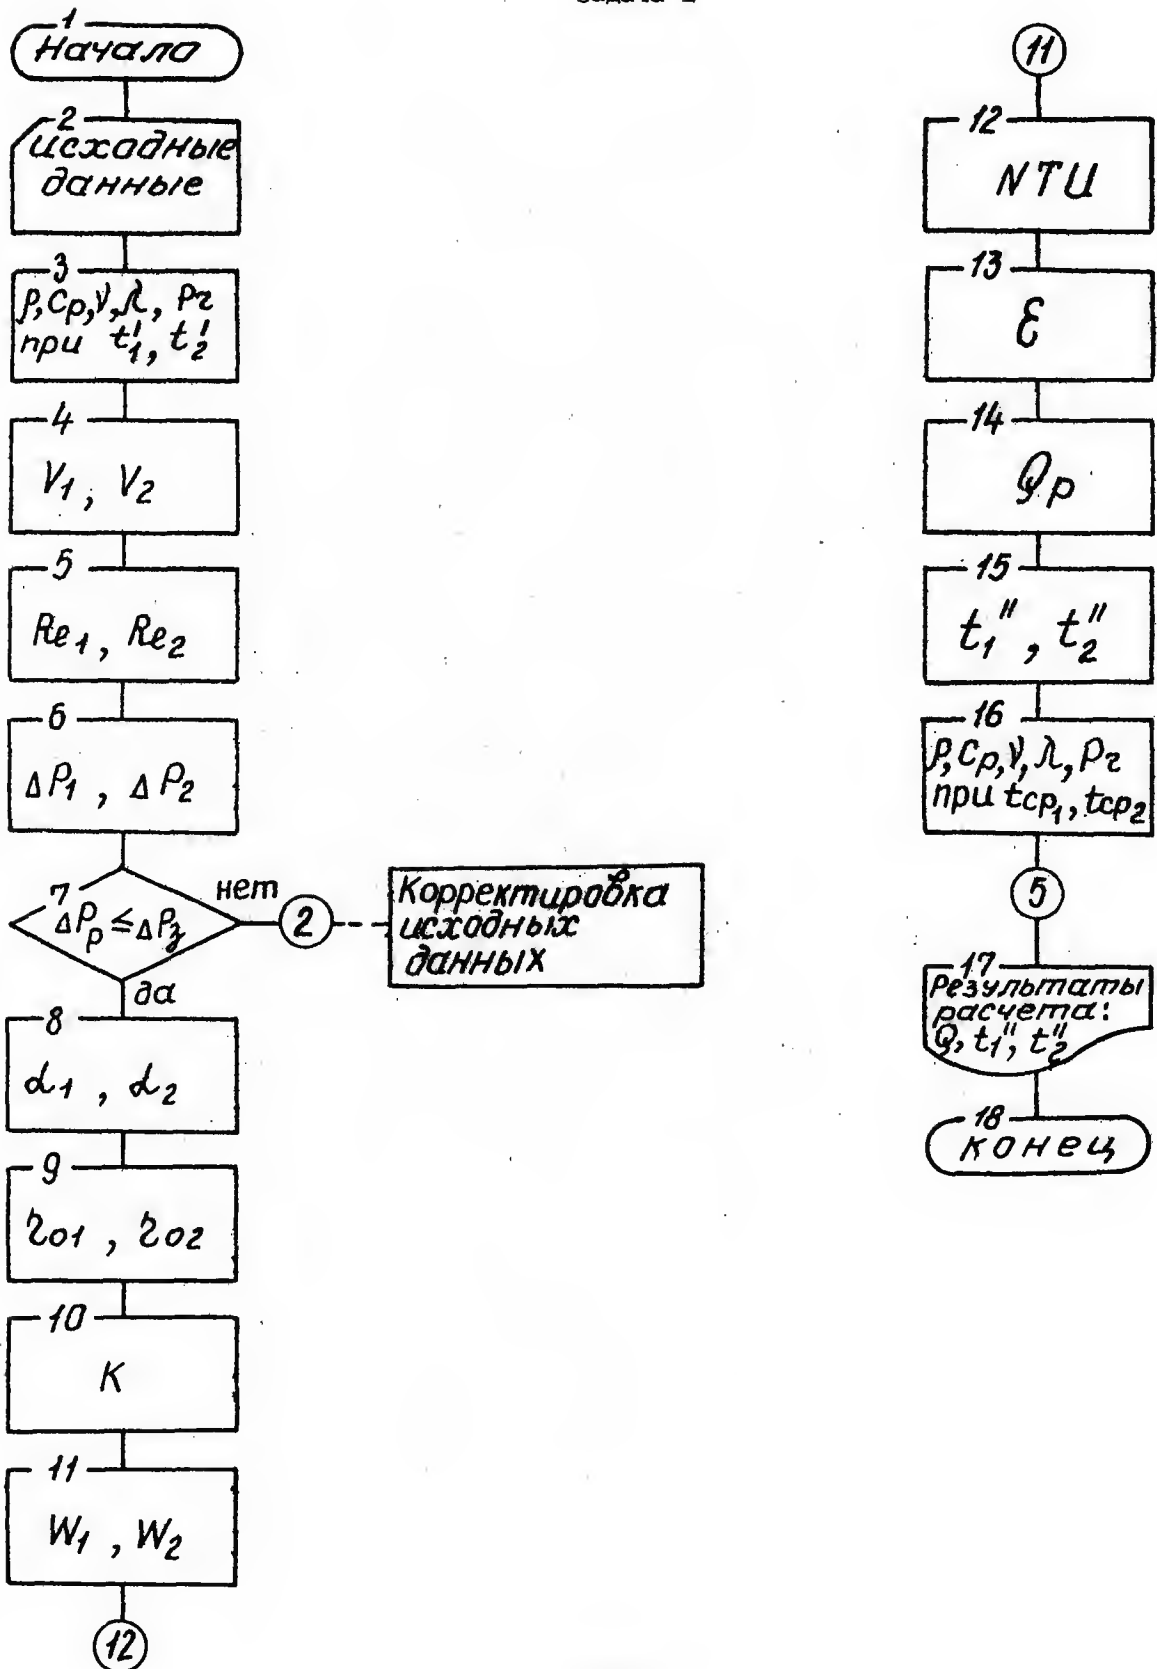 1
Начало
2
исходные
данные
3
ρ, Cp, ν, λ, Pr
при t₁', t₂'
4
V₁, V₂
5
Re₁, Re₂
6
ΔP₁, ΔP₂
7
ΔPр ≤ ΔPз
нет
2
Корректировка
исходных
данных
да
8
α₁, α₂
9
r₀₁, r₀₂
10
K
11
W₁, W₂
12
11
12
NTU
13
ε
14
Qр
15
t₁'', t₂''
16
ρ, Cp, ν, λ, Pr
при tср₁, tср₂
5
17
Результаты
расчета:
Q, t₁'', t₂''
18
конец